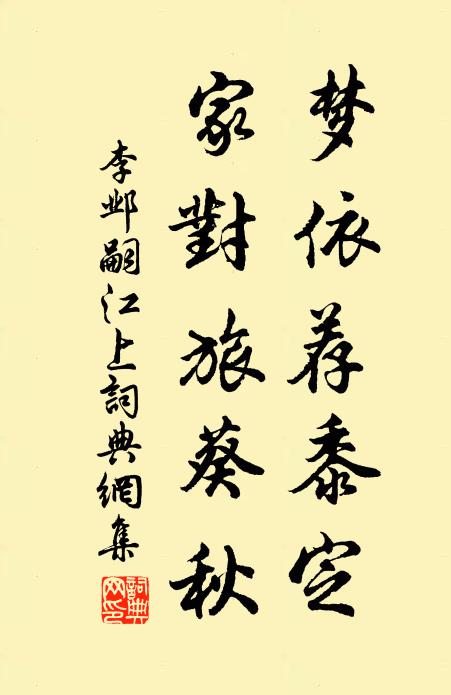 梦依荐黍定
家對旅葵秋
李邺嗣江上詞典網集
詞典网印